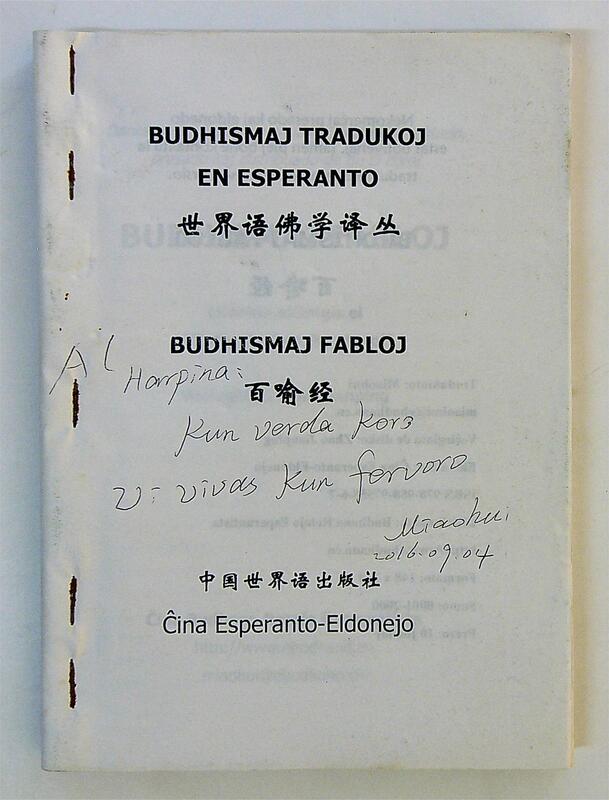 BUDHISMAJ TRADUKOJ
EN ESPERANTO
世界语佛学译丛
BUDHISMAJ FABLOJ
Al Harpina:
百喻经
Kun verda koro
Vi vivas kun fervoro
Miaohui
2016.09.04
中国世界语出版社
Ĉina Esperanto-Eldonejo